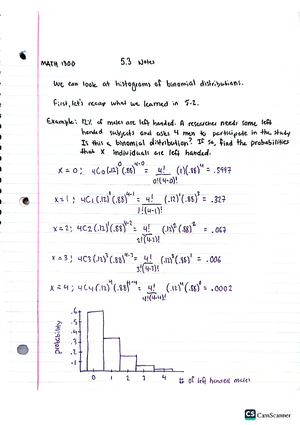 MATH 1300
5.3 Notes
We can look at histograms of binomial distributions.
First, let's recap what we learned in 5.2.
Example: 12% of males are left handed. A researcher needs some left
handed subjects and asks 4 men to participate in the study
Is this a binomial distribution? If so, find the probabilities
that X individuals are left handed.
x = 0; 4C0 (.12)⁰ (.88)⁴⁻⁰ = 4!/0!(4-0)! (1)(.88)⁴ = .5997
x = 1; 4C1 (.12)¹ (.88)⁴⁻¹ = 4!/1!(4-1)! (.12)¹ (.88)³ = .327
x = 2; 4C2 (.12)² (.88)⁴⁻² = 4!/2!(4-2)! (.12)² (.88)² = .067
x = 3; 4C3 (.12)³ (.88)⁴⁻³ = 4!/3!(4-3)! (.12)³ (.88)¹ = .006
x = 4; 4C4 (.12)⁴ (.88)⁴⁻⁴ = 4!/4!(4-4)! (.12)⁴ (.88)⁰ = .0002
probability
.6
.5
.4
.3
.2
.1
0 1 2 3 4
# of left handed males
CS CamScanner